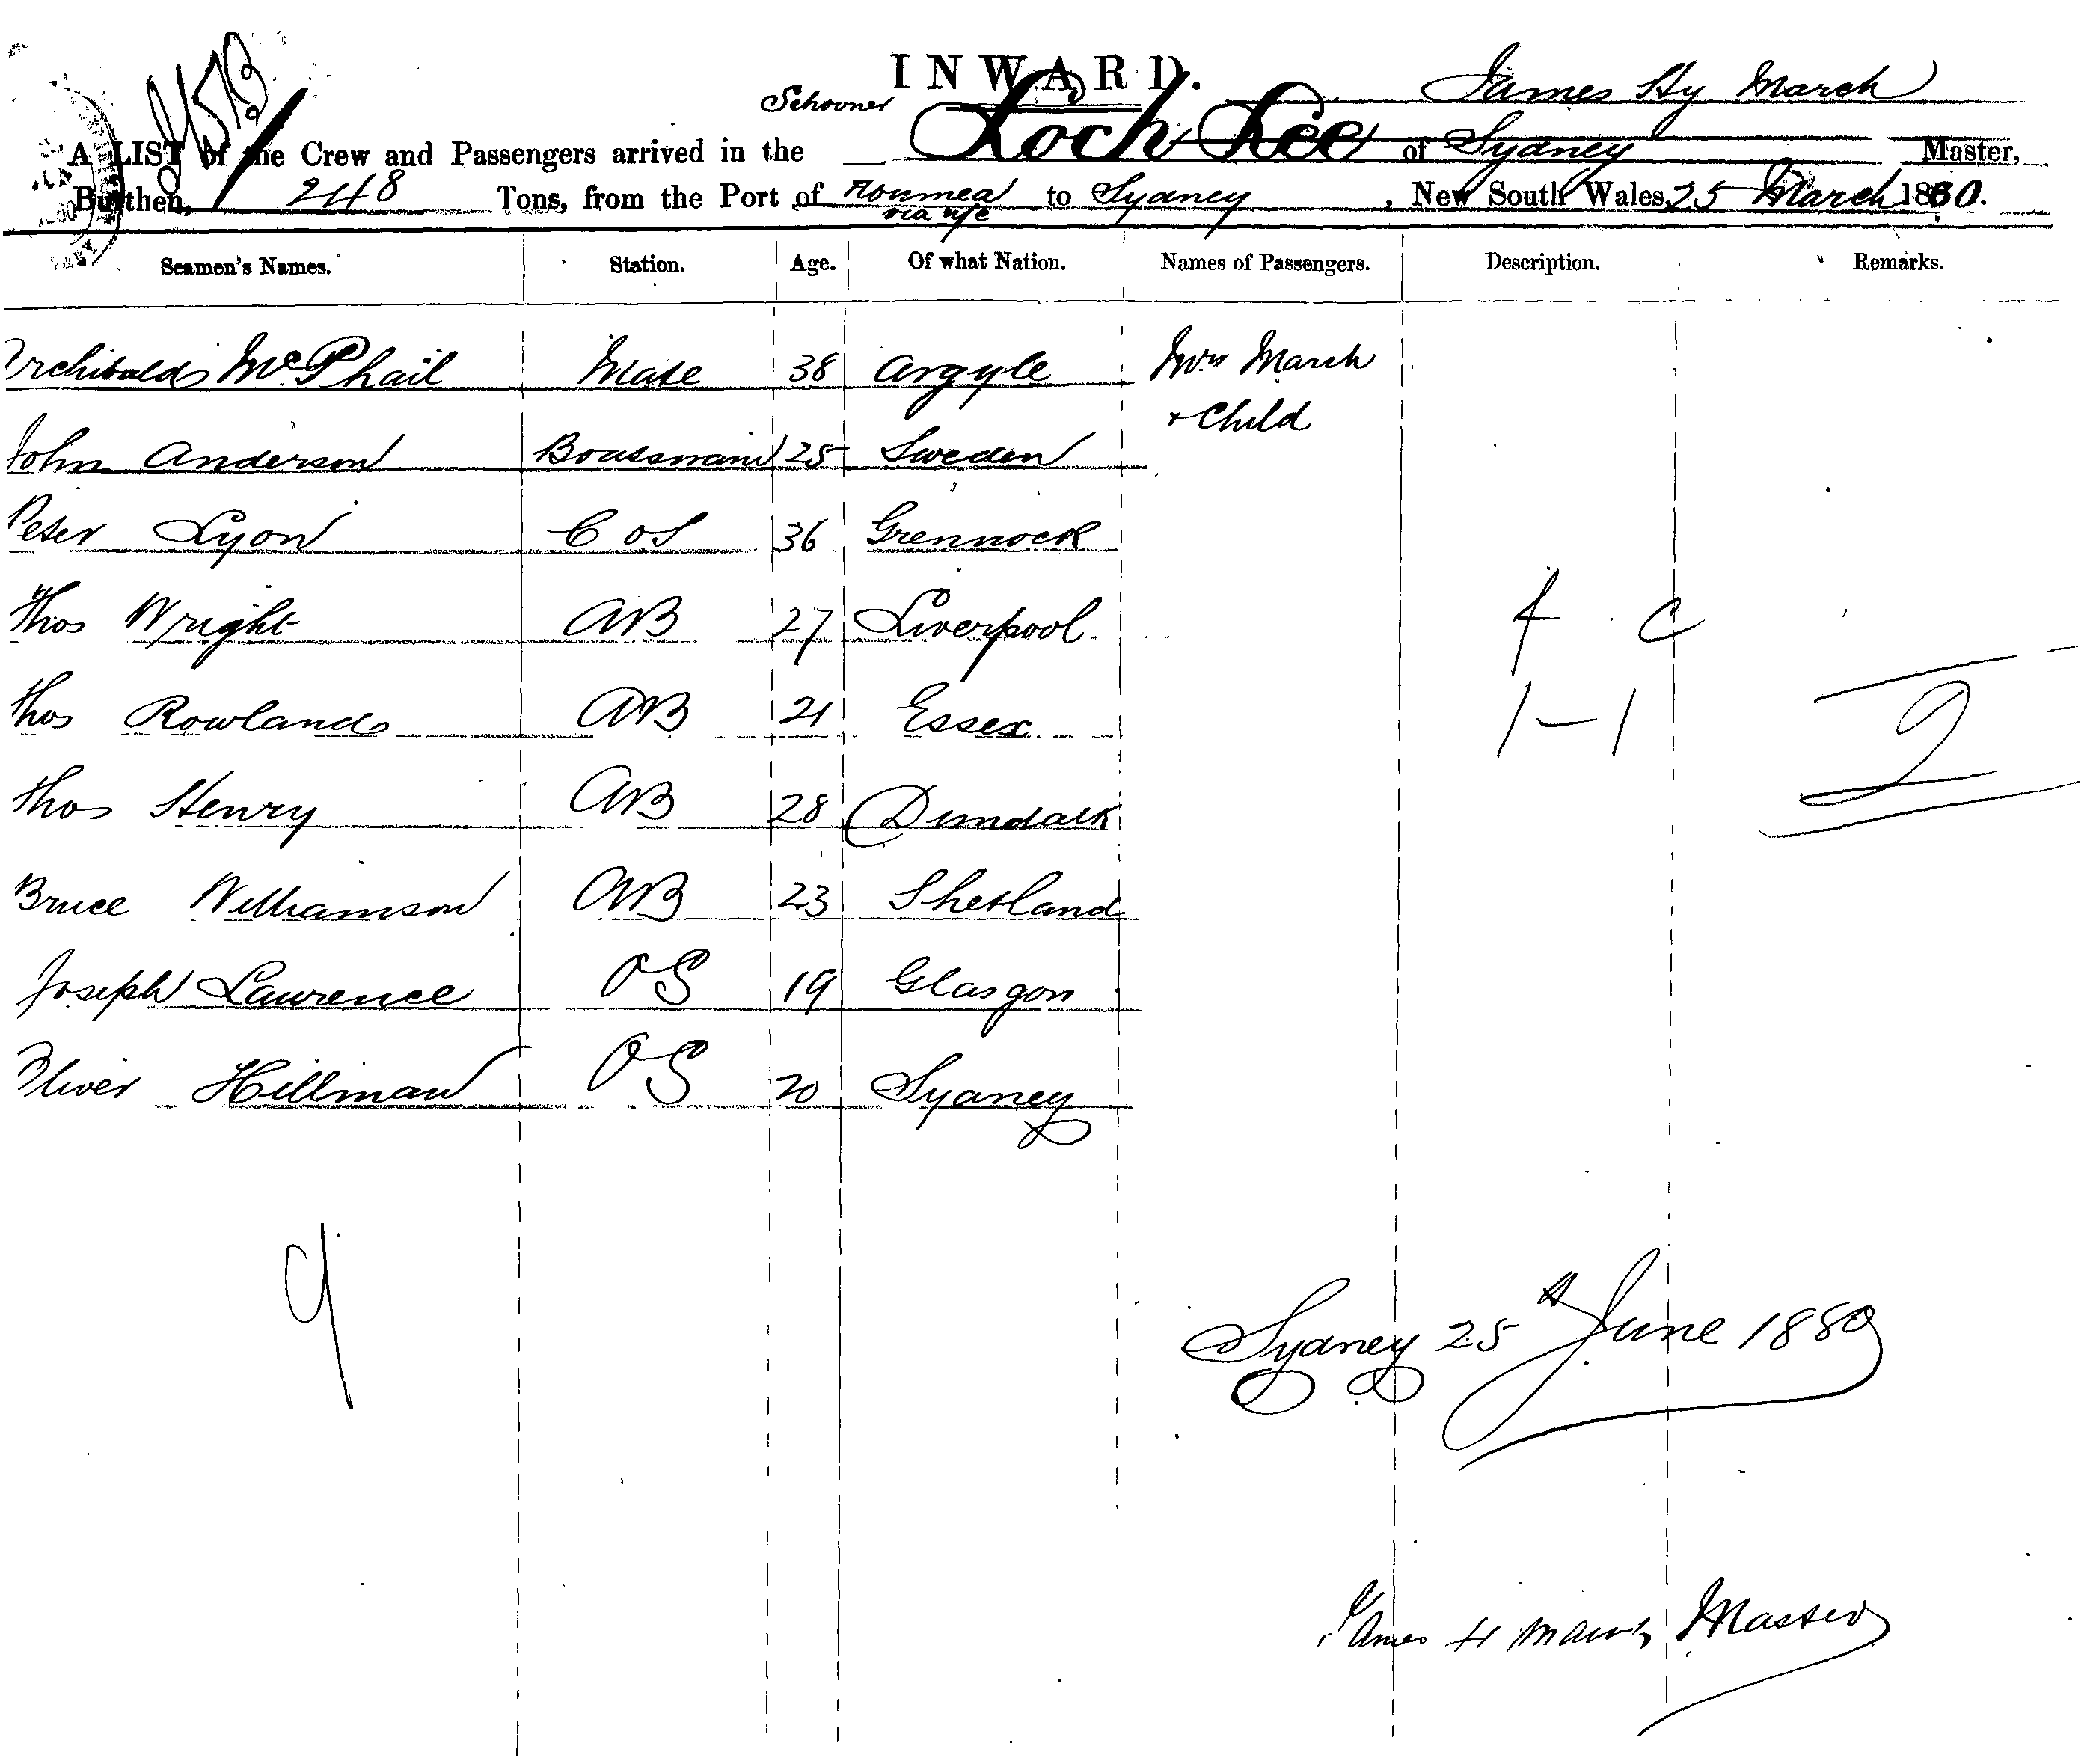 INWARD.
Schooner Loch Lee James Hy March
A LIST of the Crew and Passengers arrived in the of Sydney Master,
Burthen, 248 Tons, from the Port of Noumea to Sydney, New South Wales, 25 March 1880.
via
Seamen's Names. Station. Age. Of what Nation. Names of Passengers. Description. Remarks.
Archibald McPhail Mate 38 Argyle Mrs March
+ Child
John Anderson Boatsman 25 Sweden
Peter Lyon C & S 36 Grennock
Thos Wright AB 27 Liverpool f c
Thos Rowland AB 21 Essex 1 - 1 2
Thos Henry AB 28 Dundalk
Bruce Williamson AB 23 Shetland
Joseph Lawrence OS 19 Glasgow
Oliver Hillman OS 20 Sydney
9
Sydney 25th June 1880
James H March Master